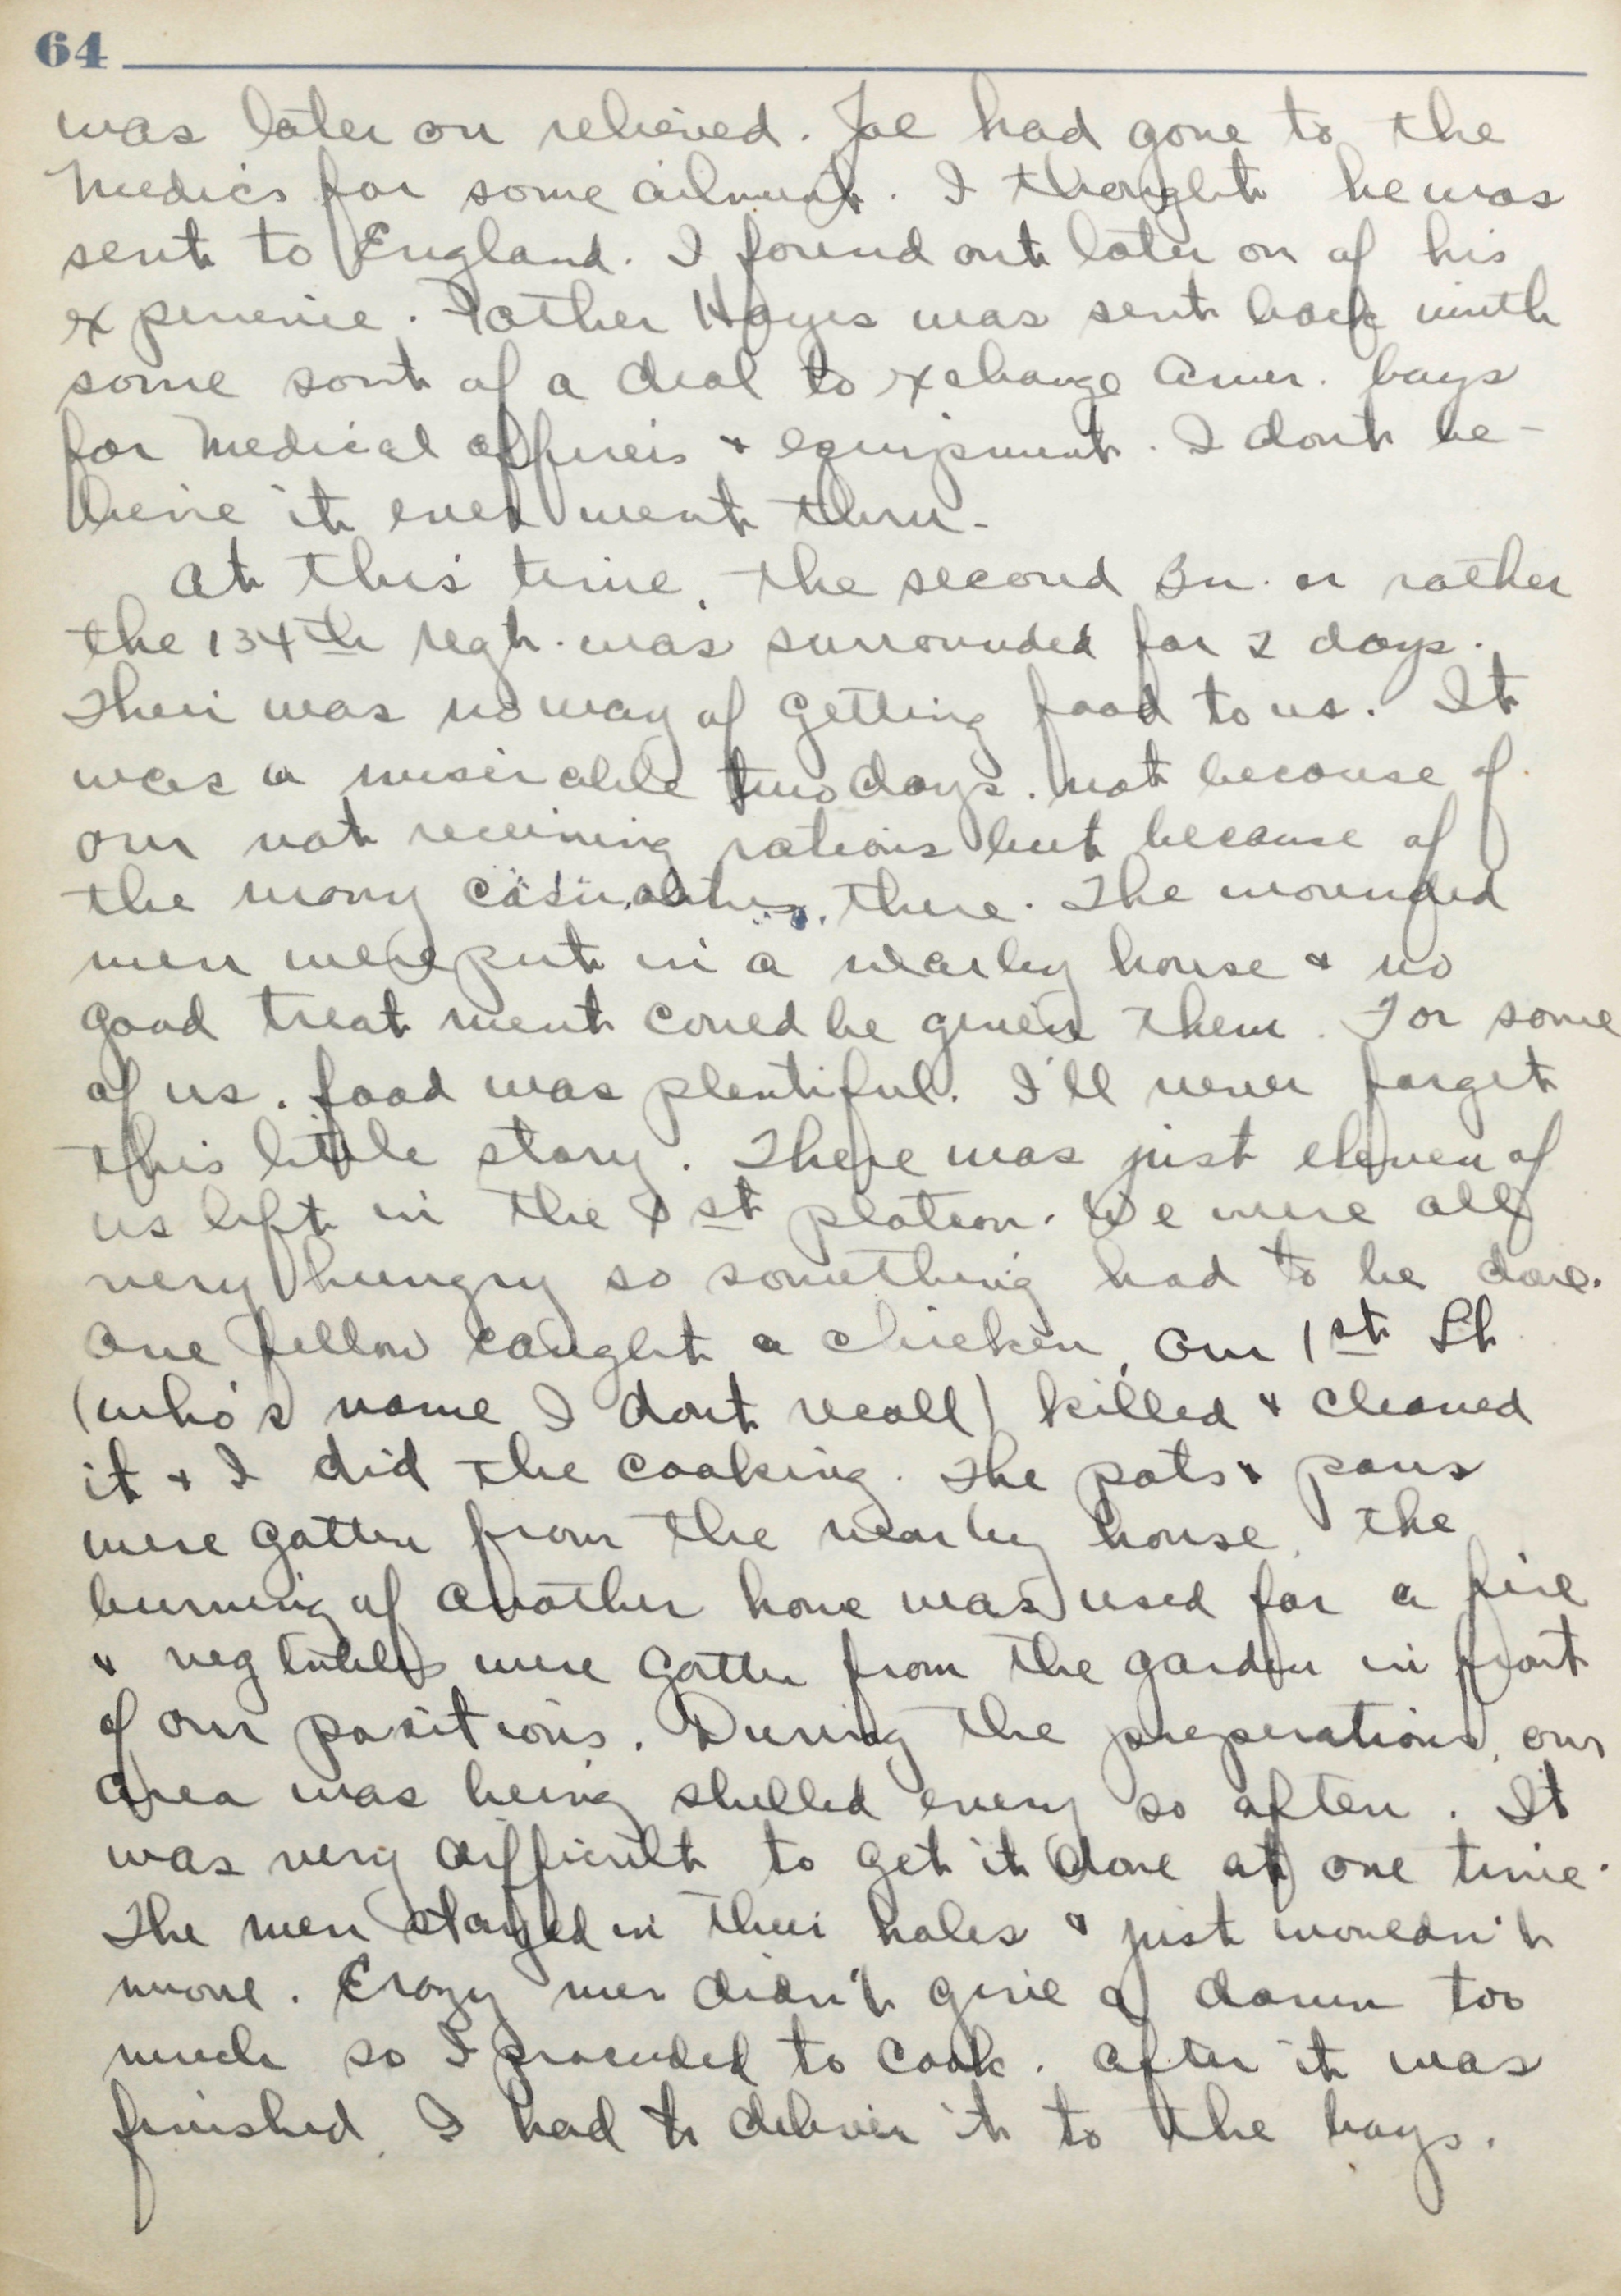 64
was later on relieved. Joe had gone to the
Medics for some ailment. I thought he was
sent to England. I found out later on of his
experience. Father Hayes was sent back with
some sort of a deal to exchange Amer. boys
for medical officers & equipment. I dont be-
lieve it ever went thru.
At this time, the second Bn. or rather
the 134th regt. was surrounded for 2 days.
Their was no way of getting food to us. It
was a miserable two days. not because of
our not receiving rations but because of
the many casualties there. The wounded
men were put in a nearby house & no
good treatment could be given them. For some
of us, food was plentiful. I'll never forget
this little story. There was just eleven of
us left in the 1st platoon. We were all
very hungry so something had to be done.
One fellow caught a chicken, our 1st Lt
(who's name I dont recall) killed & cleaned
it & I did the cooking. The pots & pans
were gotten from the nearby house, the
burning of another home was used for a fire
& vegtables were gotten from the garden in front
of our positions. During the preperations, our
area was being shelled every so often. It
was very difficult to get it done at one time.
The men stayed in their holes & just wouldn't
move. Crazy me didn't give a damn too
much so I proceeded to cook. After it was
finished, I had to deliver it to the boys.